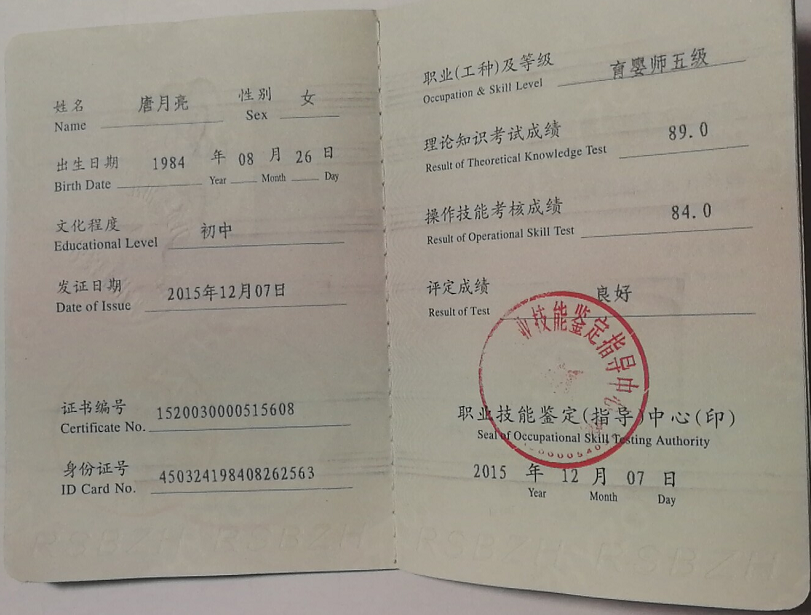 姓名 唐月亮 性别 女
Name Sex
出生日期 1984 年 08 月 26 日
Birth Date Year Month Day
文化程度 初中
Educational Level
发证日期 2015年12月07日
Date of Issue
证书编号 1520030000515608
Certificate No.
身份证号 450324198408262563
ID Card No.
RSBZH RSBZH
职业(工种)及等级 育婴师五级
Occupation & Skill Level
理论知识考试成绩 89.0
Result of Theoretical Knowledge Test
操作技能考核成绩 84.0
Result of Operational Skill Test
评定成绩 良好
Result of Test
业技能鉴定指导中心
职业技能鉴定(指导)中心(印)
Seal of Occupational Skill Testing Authority
2015 年 12 月 07 日
Year Month Day
RSBZH RSBZH